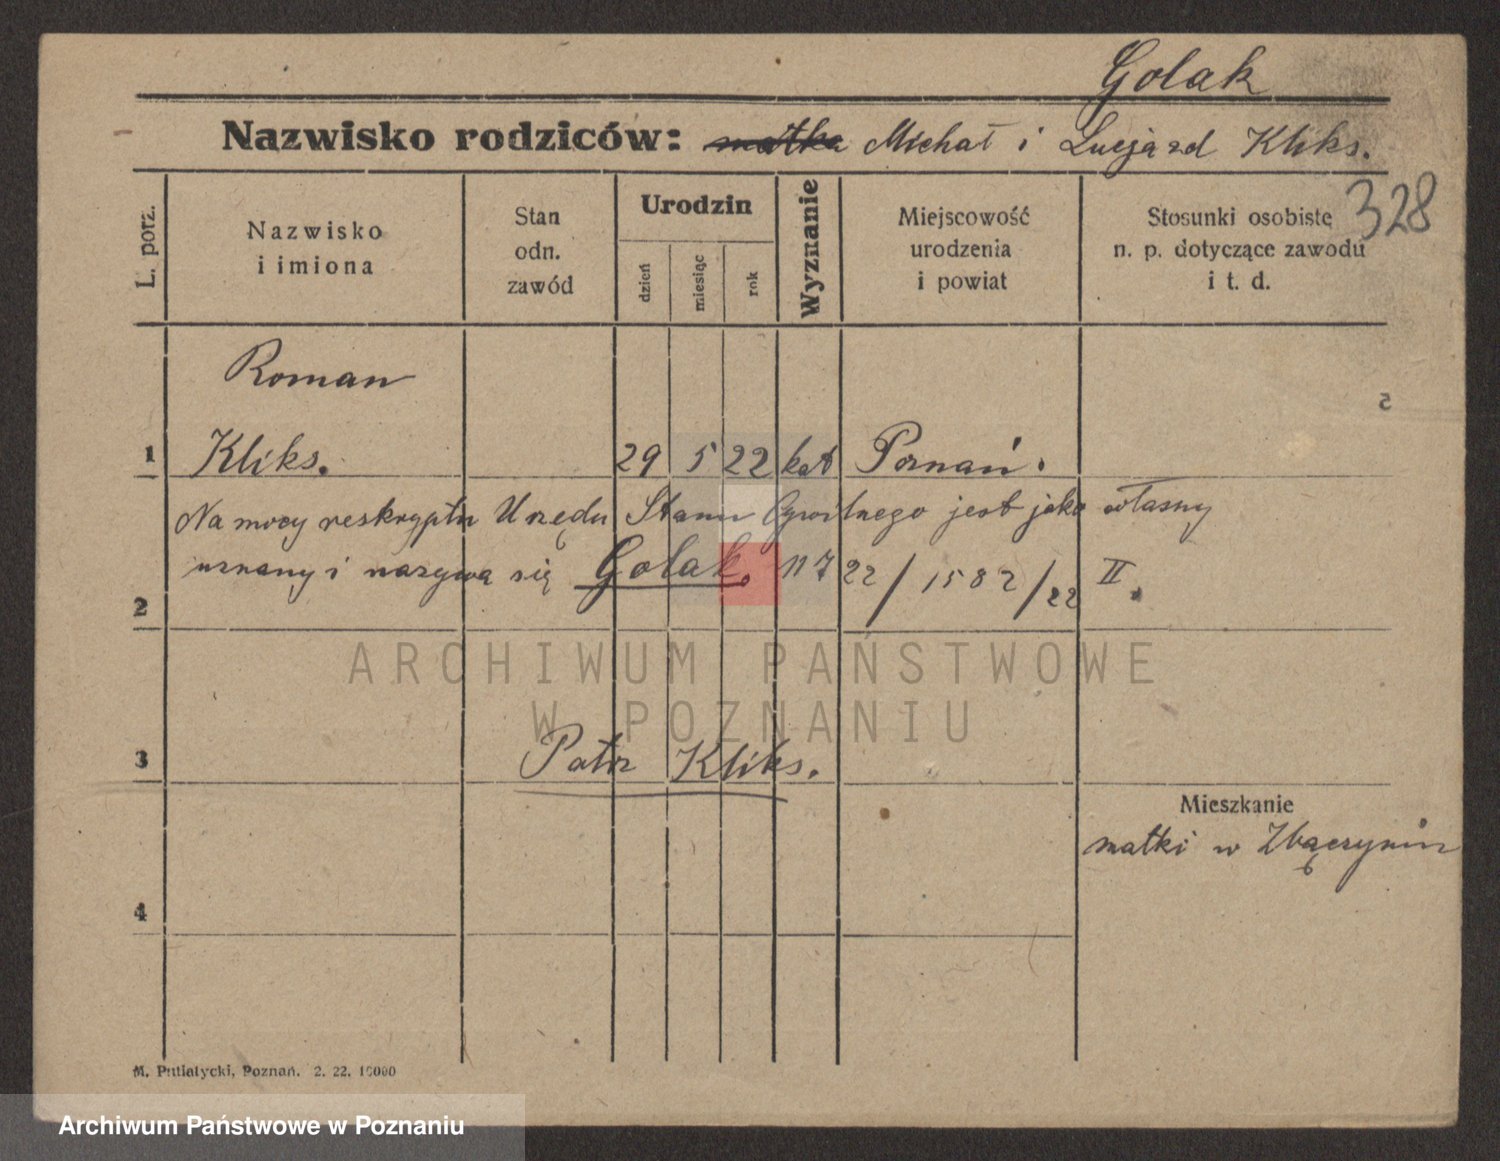 Golak
Nazwisko rodziców: matka Michał i Lucja zd Kliks.
328
L. porz.
Nazwisko
i imiona
Stan
odn.
zawód
Urodzin
dzień
miesiąc
rok
Wyznanie
Miejscowość
urodzenia
i powiat
Stosunki osobistę
n. p. dotyczące zawodu
i t. d.
Roman
1 Kliks. 29 5 22 kat Poznań.
Na mocy reskryptu Urzędu Stanu Cywilnego jest jako własny
uznany i nazywa się Golak. 11 7 22 / 1582 / 22 II.
2
ARCHIWUM PAŃSTWOWE
W POZNANIU
3 Patrz Kliks.
Mieszkanie
matki w Zbączyniu
4
M. Putiatycki, Poznań. 2. 22. 10000
Archiwum Państwowe w Poznaniu